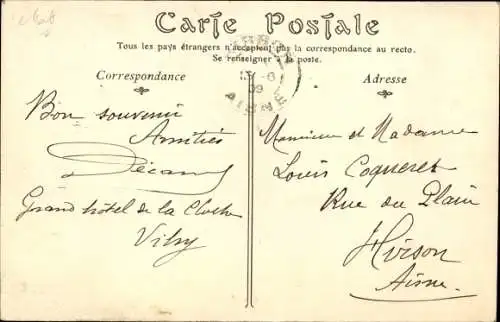 Carte Postale
Tous les pays étrangers n'acceptent pas la correspondance au recto.
Se renseigner à la poste.
Correspondance
Adresse
Bon souvenir
Amitiés
Grand hôtel de la Cloche
Vitry
AISNE
09
Monsieur et Madame
Louis Coqueret
Rue du Plain
Hirson
Aisne